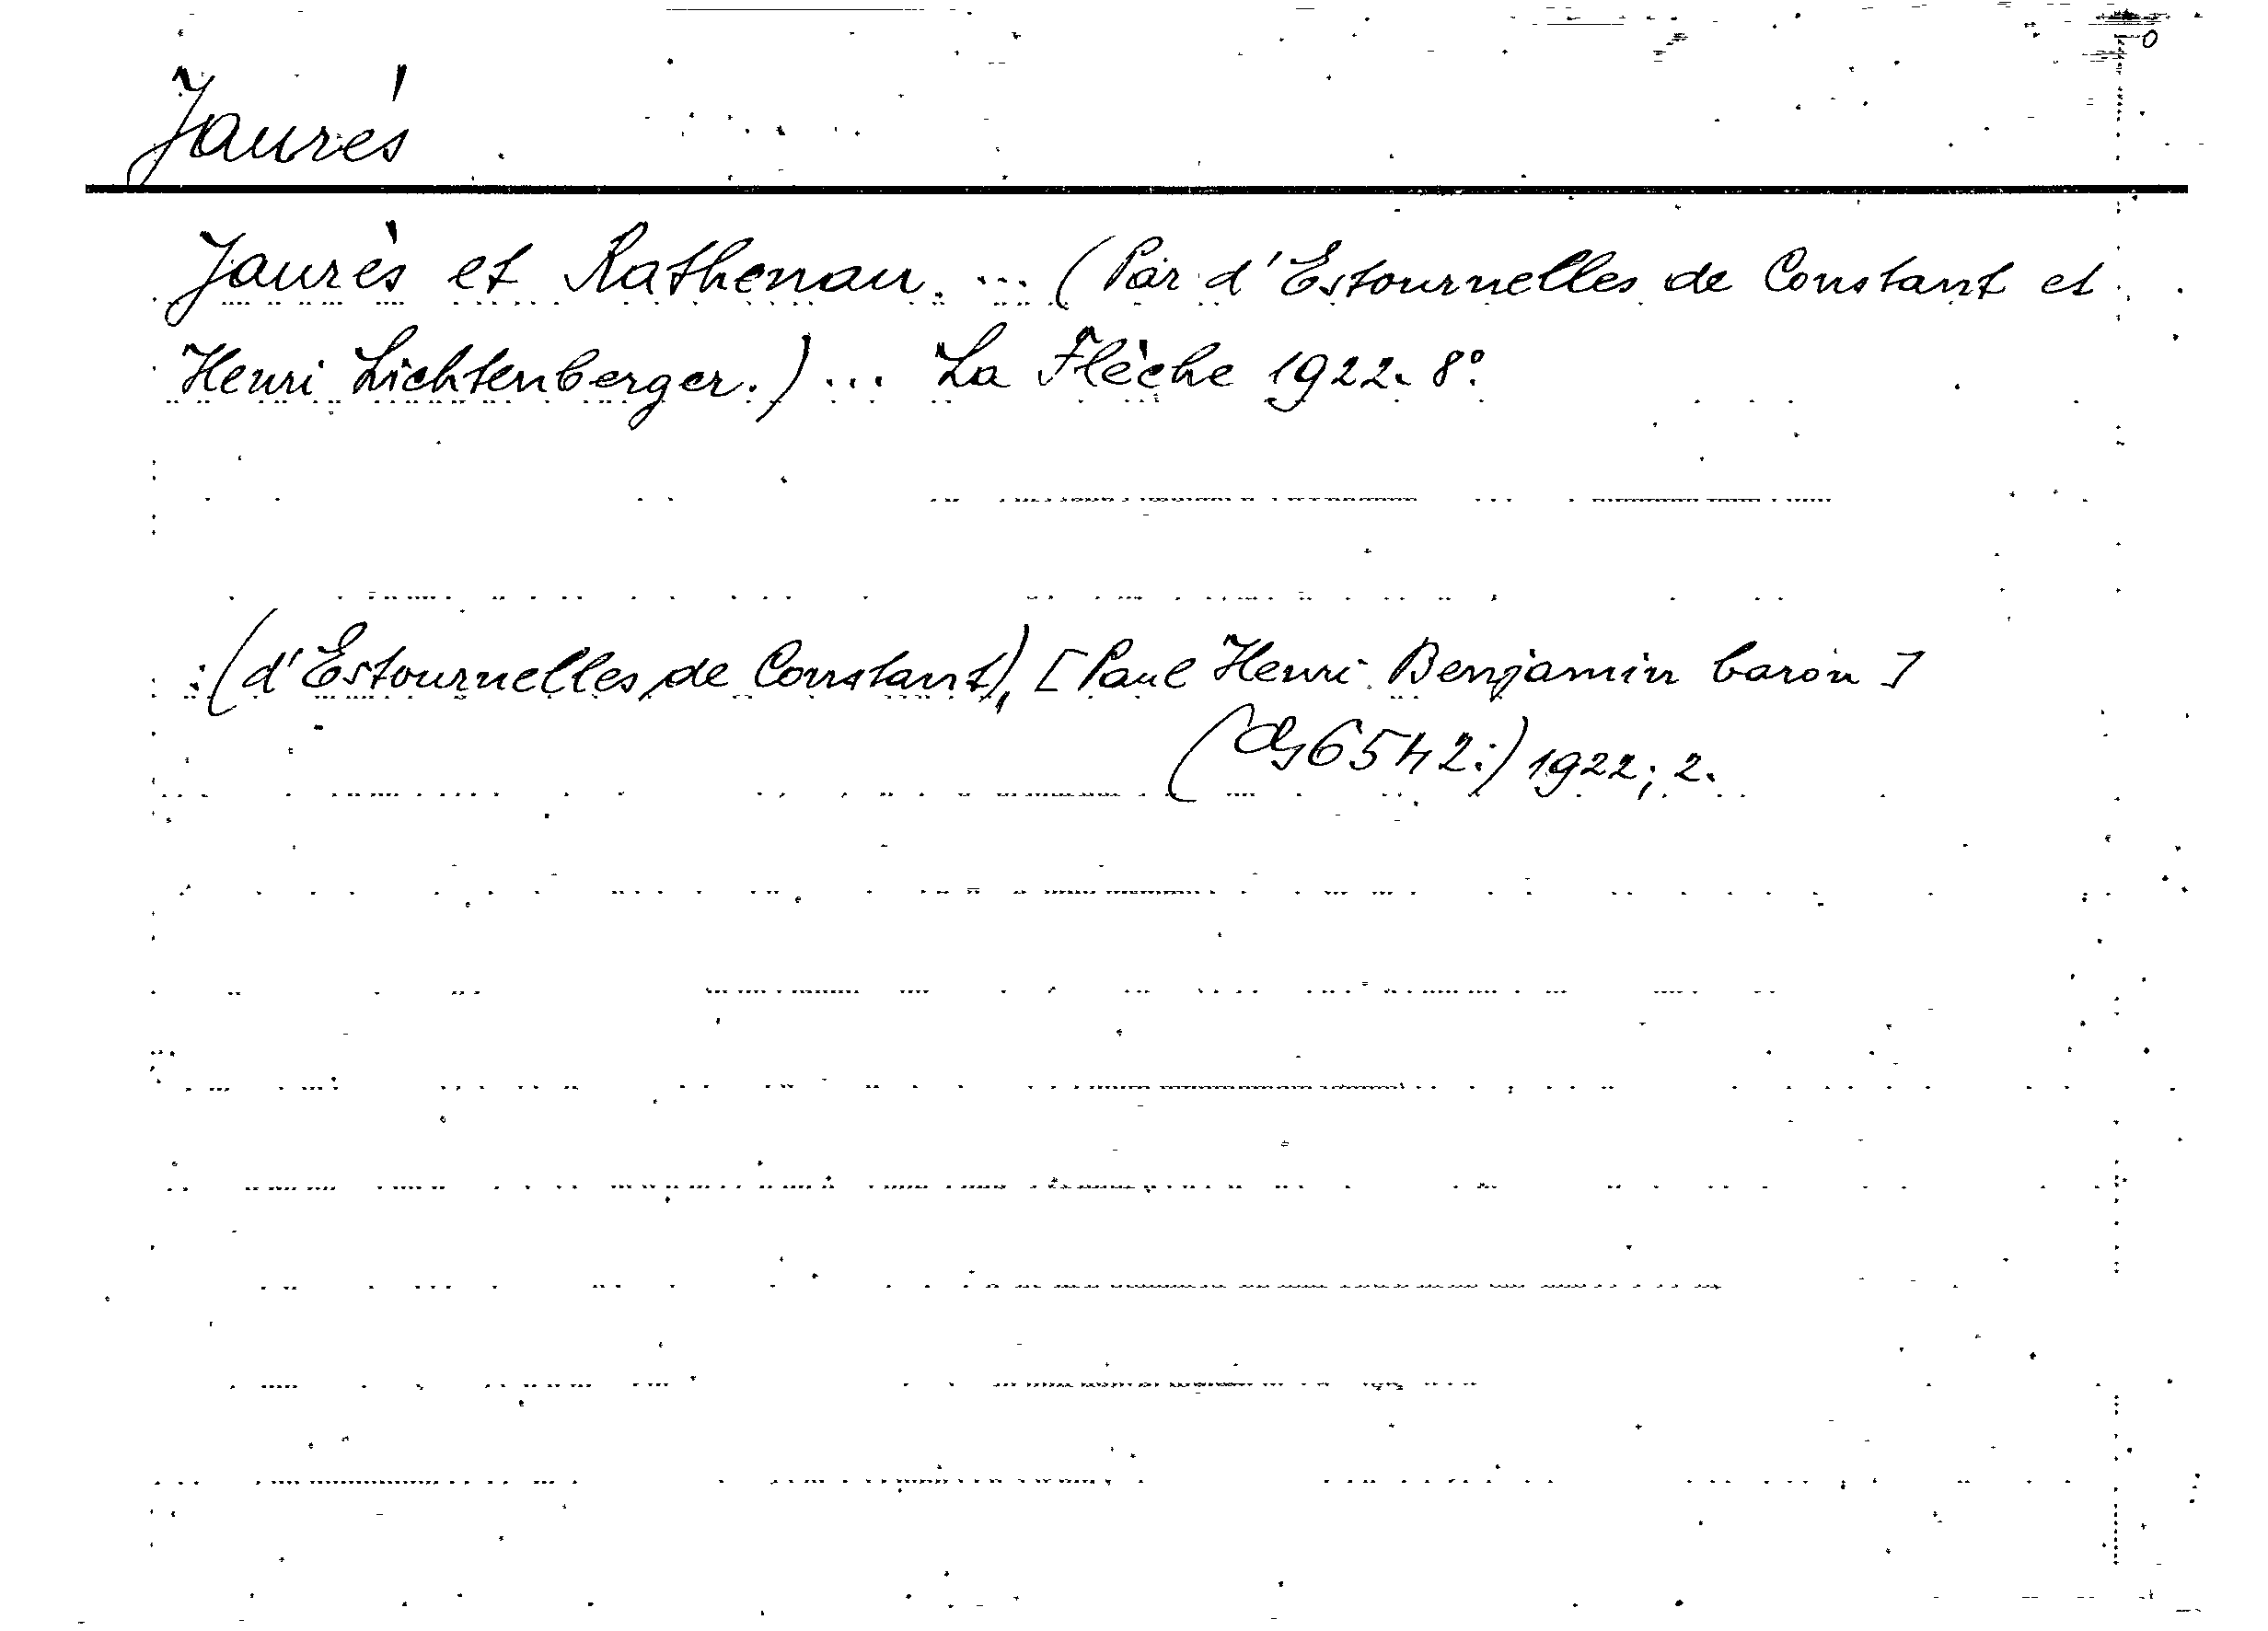 Jaurés
Jaurès et Rathenau. ... (Par d'Estournelles de Constant et
Henri Lichtenberger.) ... La Flèche 1922. 8°.
:(d'Estournelles de Constant), [Paul Henri Benjamin baron]
6542:) 1922; 2.